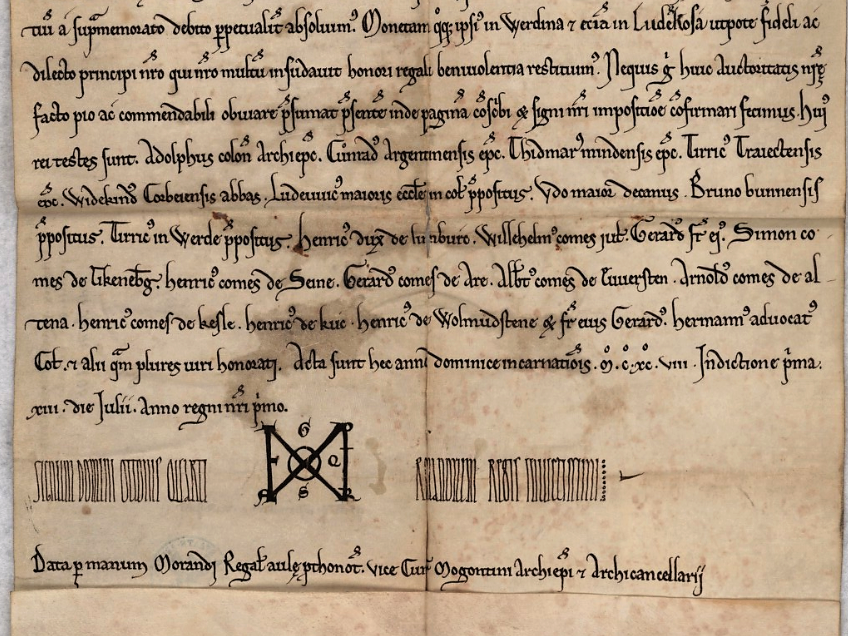 tiū a sup̄memorato debito p̱petualit̄ absoluim᷒. Monetam q̊q; ipsi᷒ in Werdina ⁊ eciā in Ludekosa utpote fideli ac
dilecto principi nr̄o qui nr̄o multū insudauit honori regali beniuolentia restituim᷒. Nequis g̊ huic Auctoritatis nr̄ę
facto pio ac commendabili obuiare p̄sumat p̄sentē inde paginā cōsc̄bi & signi nr̄i impositiōe cōfirmari fecimus. Hui᷒
rei testes sunt. Adolphus colon̄ Archiep̄c. Cūnrad᷒ Argentinensis ep̄c. Thidmar᷒ mindensis ep̄c. Tirric᷒ Traiectensis
ep̄c. Widekind᷒ Corbeiensis abbas. Ludewic᷒ maioris eccl̄e in col̄ p̄positus. Vdo maior decanus. Bruno bunnensis
p̄positus. Tirric᷒ in Werde p̄positus. Henric᷒ dux de limburc. Willehelm᷒ comes jul̄. Gerard᷒ fr̄ ei᷒. Simon co
mes de Tikeneb̄g. henric᷒ comes de Seine. Gerard᷒ comes de Are. Alb̄t᷒ comes de Euuersten. Arnold᷒ comes de al
tena. henric᷒ comes de kesle. henric᷒ de kuc. henric᷒ de Wolmudstene & fr̄ eius Gerard᷒. hermann᷒ aduocat᷒
Col̄. ⁊ alii q̄m plures uiri honorati. Acta sunt hec anni dominice incarnatiōis. m̊. c̊. xc̊. viii. Indictione p̄ma.
xiii. die Julii. Anno regni nr̄i p̄mo.
SIGNUM DOMINI OTTONIS QUARTI
ROMANORUM REGIS INVICTISSIMI
Data p̱ manum Morandi Regal̄ aulę p̱thonot̄. vice Cur̄ Mogontini Archiep̄i ⁊ Archicancellarij